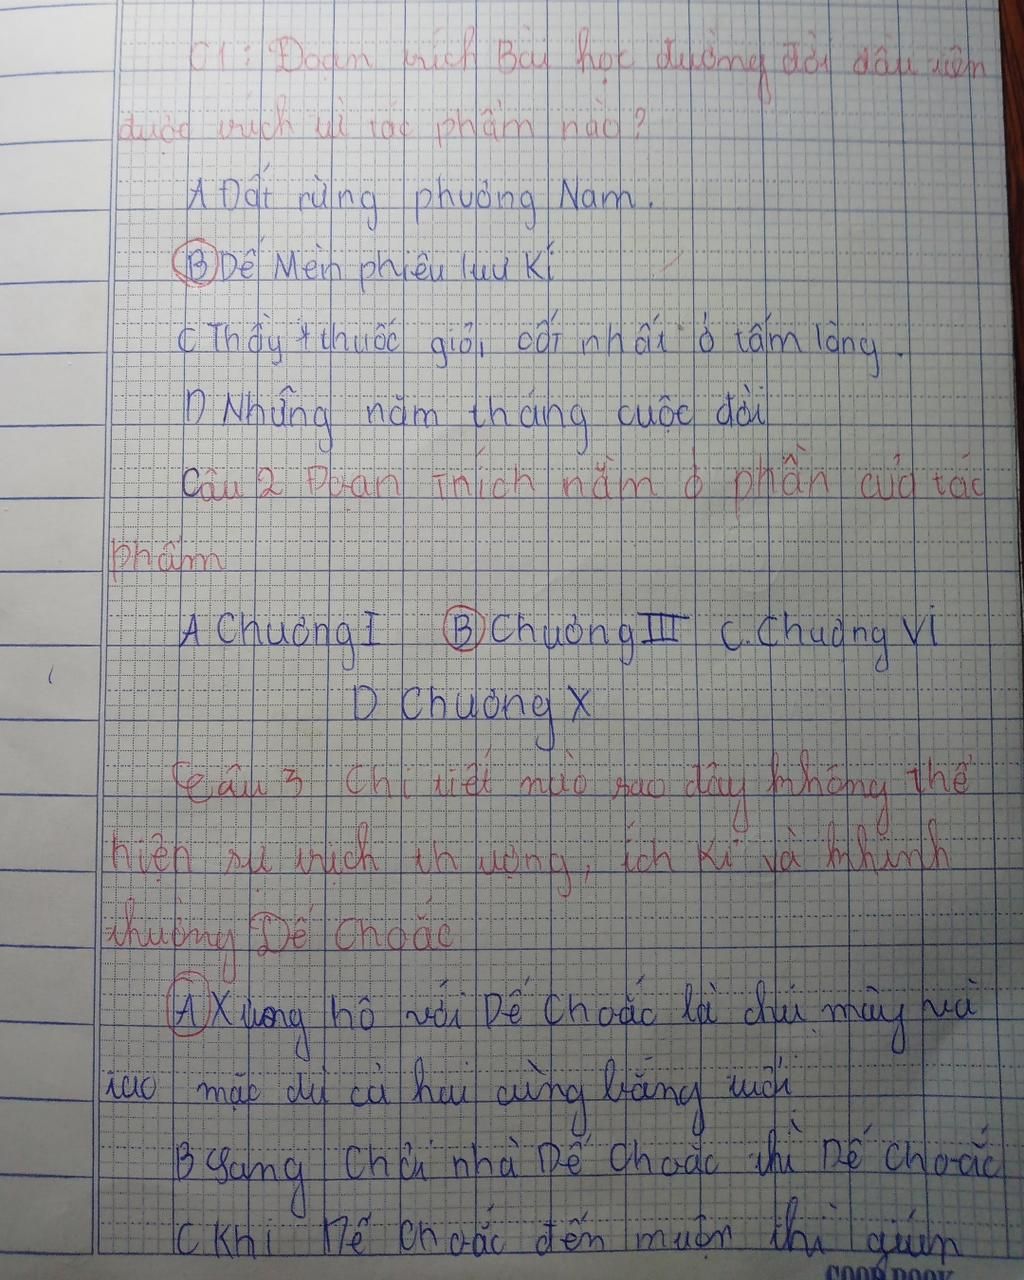 C1: Đoạn trích Bài học đường đời đầu tiên
được trích từ tác phẩm nào?
A Đất rừng phương Nam.
B Dế Mèn phiêu lưu Kí
C Thầy thuốc giỏi cốt nhất ở tấm lòng.
D Những năm tháng cuộc đời
Câu 2 Đoạn Trích nằm ở phần của tác
phẩm
A Chương I B Chương III C. Chương VI
D Chương X
Câu 3 Chi tiết nào sao đây không thể
hiện sự trịch thượng, ích kỉ và khinh
thường Dế Choắc
A Xương hô với Dế Choắc là chú mày và
tao mặc dù cả hai cùng bằng tuổi
B Sang chơi nhà Dế Choắc thì Dế Choắc
C Khi Dế Choắc đến muộn thì
GOOD BOOK